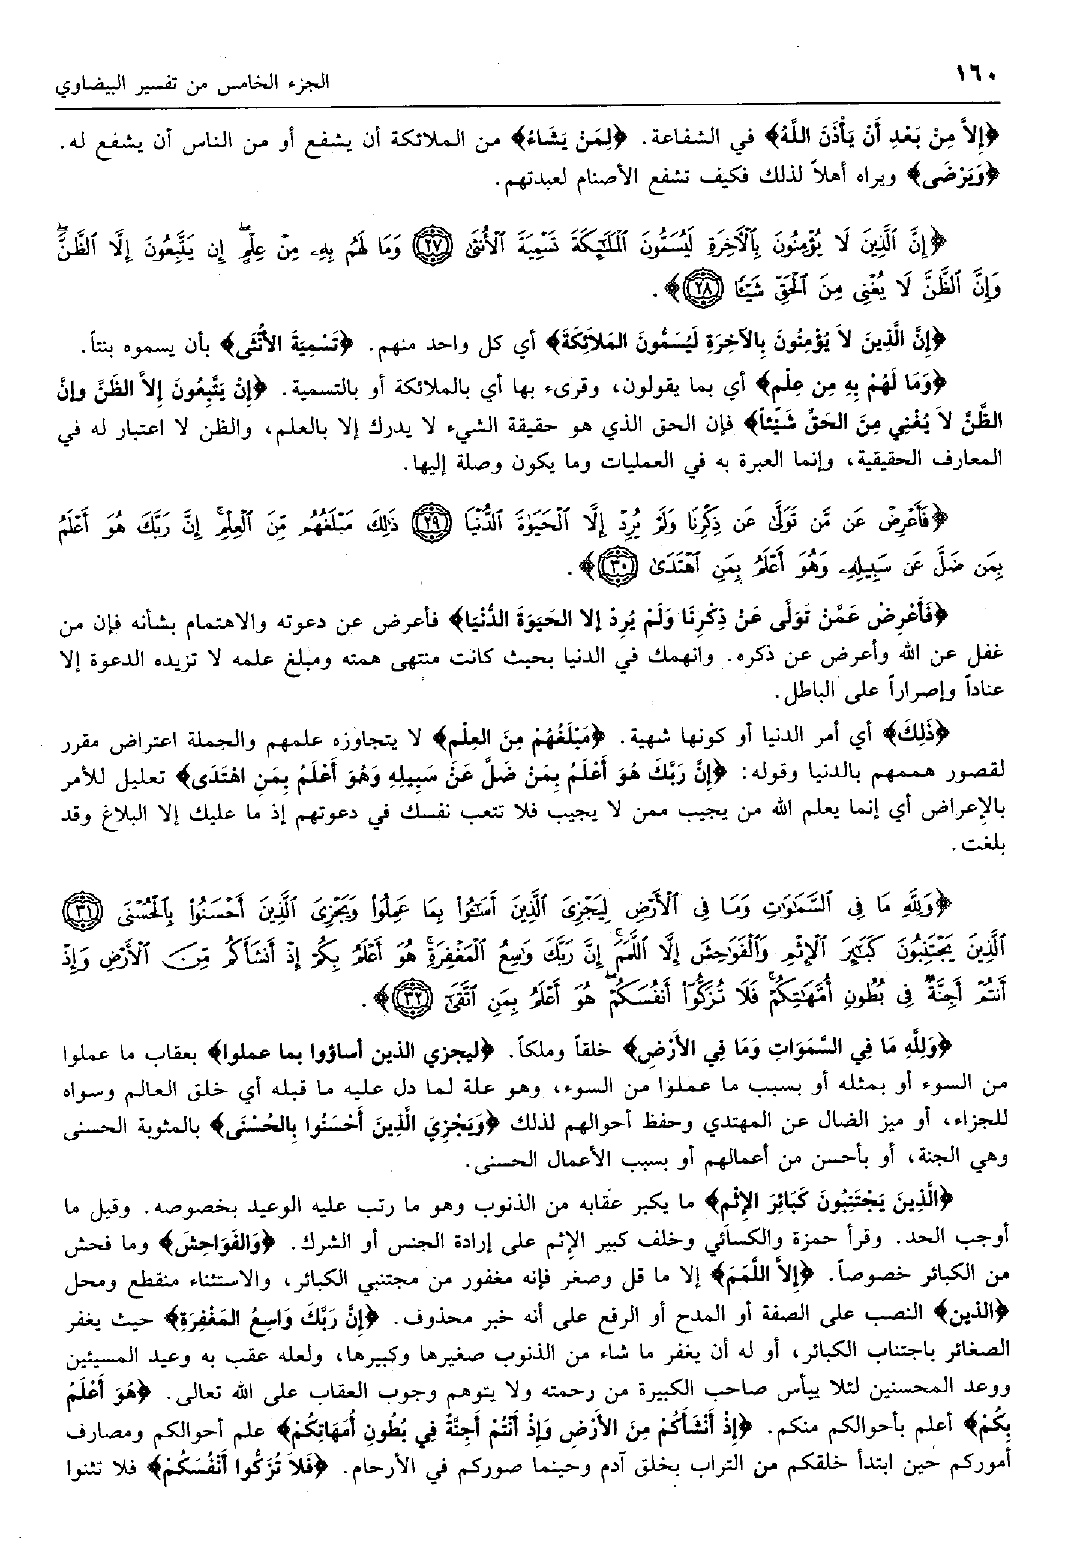 ١٦٠
الجزء الخامس من تفسير البيضاوي
﴿إِلاَّ مِنْ بَعْدِ أَنْ يَأْذَنَ اللَّهُ﴾ في الشفاعة. ﴿لِمَنْ يَشَاءُ﴾ من الملائكة أن يشفع أو من الناس أن يشفع له.
﴿وَيَرْضَى﴾ ويراه أهلاً لذلك فكيف تشفع الأصنام لعبدتهم.
﴿إِنَّ ٱلَّذِينَ لَا يُؤْمِنُونَ بِٱلْآخِرَةِ لَيُسَمُّونَ ٱلْمَلَٰٓئِكَةَ تَسْمِيَةَ ٱلْأُنثَىٰ ﴿٢٧﴾ وَمَا لَهُم بِهِۦ مِنْ عِلْمٍ ۖ إِن يَتَّبِعُونَ إِلَّا ٱلظَّنَّ ۖ
وَإِنَّ ٱلظَّنَّ لَا يُغْنِي مِنَ ٱلْحَقِّ شَيْـًٔا ﴿٢٨﴾﴾.
﴿إِنَّ الَّذِينَ لاَ يُؤْمِنُونَ بِالآخِرَةِ لَيُسَمُّونَ المَلائِكَةَ﴾ أي كل واحد منهم. ﴿تَسْمِيَةَ الأُنْثَى﴾ بأن يسموه بنتاً.
﴿وَمَا لَهُمْ بِهِ مِن عِلْمٍ﴾ أي بما يقولون، وقرىء بها أي بالملائكة أو بالتسمية. ﴿إِنْ يَتَّبِعُونَ إِلاَّ الظَّنَّ وإنَّ
الظَّنَّ لاَ يُغْنِي مِنَ الحَقِّ شَيْئاً﴾ فإن الحق الذي هو حقيقة الشيء لا يدرك إلا بالعلم، والظن لا اعتبار له في
المعارف الحقيقية، وإنما العبرة به في العمليات وما يكون وصلة إليها.
﴿فَأَعْرِضْ عَن مَّن تَوَلَّىٰ عَن ذِكْرِنَا وَلَمْ يُرِدْ إِلَّا ٱلْحَيَوٰةَ ٱلدُّنْيَا ﴿٢٩﴾ ذَٰلِكَ مَبْلَغُهُم مِّنَ ٱلْعِلْمِ ۚ إِنَّ رَبَّكَ هُوَ أَعْلَمُ
بِمَن ضَلَّ عَن سَبِيلِهِۦ وَهُوَ أَعْلَمُ بِمَنِ ٱهْتَدَىٰ ﴿٣٠﴾﴾.
﴿فَأَعْرِضْ عَمَّنْ تَوَلَّى عَنْ ذِكْرِنَا وَلَمْ يُرِدْ إلا الحَيَوةَ الدُّنْيَا﴾ فأعرض عن دعوته والاهتمام بشأنه فإن من
غفل عن الله وأعرض عن ذكره. وانهمك في الدنيا بحيث كانت منتهى همته ومبلغ علمه لا تزيده الدعوة إلا
عناداً وإصراراً على الباطل.
﴿ذَلِكَ﴾ أي أمر الدنيا أو كونها شهية. ﴿مَبْلَغُهُمْ مِنَ العِلْمِ﴾ لا يتجاوزه علمهم والجملة اعتراض مقرر
لقصور هممهم بالدنيا وقوله: ﴿إِنَّ رَبَّكَ هُوَ أَعْلَمُ بِمَنْ ضَلَّ عَنْ سَبِيلِهِ وَهُوَ أَعْلَمُ بِمَنِ اهْتَدَى﴾ تعليل للأمر
بالإعراض أي إنما يعلم الله من يجيب ممن لا يجيب فلا تتعب نفسك في دعوتهم إذ ما عليك إلا البلاغ وقد
بلغت.
﴿وَلِلَّهِ مَا فِى ٱلسَّمَٰوَٰتِ وَمَا فِى ٱلْأَرْضِ لِيَجْزِىَ ٱلَّذِينَ أَسَٰٓـُٔوا۟ بِمَا عَمِلُوا۟ وَيَجْزِىَ ٱلَّذِينَ أَحْسَنُوا۟ بِٱلْحُسْنَى ﴿٣١﴾
ٱلَّذِينَ يَجْتَنِبُونَ كَبَٰٓئِرَ ٱلْإِثْمِ وَٱلْفَوَٰحِشَ إِلَّا ٱللَّمَمَ ۚ إِنَّ رَبَّكَ وَٰسِعُ ٱلْمَغْفِرَةِ ۚ هُوَ أَعْلَمُ بِكُمْ إِذْ أَنشَأَكُم مِّنَ ٱلْأَرْضِ وَإِذْ
أَنتُمْ أَجِنَّةٌ فِى بُطُونِ أُمَّهَٰتِكُمْ ۖ فَلَا تُزَكُّوٓا۟ أَنفُسَكُمْ ۖ هُوَ أَعْلَمُ بِمَنِ ٱتَّقَىٰٓ ﴿٣٢﴾﴾.
﴿وَلِلَّهِ مَا فِي السَّمَوَاتِ وَمَا فِي الأَرْضِ﴾ خلقاً وملكاً. ﴿ليجزي الذين أساؤوا بما عملوا﴾ بعقاب ما عملوا
من السوء أو بمثله أو بسبب ما عملوا من السوء، وهو علة لما دل عليه ما قبله أي خلق العالم وسواه
للجزاء، أو ميز الضال عن المهتدي وحفظ أحوالهم لذلك ﴿وَيَجْزِيَ الَّذِينَ أَحْسَنُوا بِالحُسْنَى﴾ بالمثوبة الحسنى
وهي الجنة، أو بأحسن من أعمالهم أو بسبب الأعمال الحسنى.
﴿الَّذِينَ يَجْتَنِبُونَ كَبَائِرَ الإِثْمِ﴾ ما يكبر عقابه من الذنوب وهو ما رتب عليه الوعيد بخصوصه. وقيل ما
أوجب الحد. وقرأ حمزة والكسائي وخلف كبير الإثم على إرادة الجنس أو الشرك. ﴿وَالفَوَاحِشَ﴾ وما فحش
من الكبائر خصوصاً. ﴿إِلاَّ اللَّمَمَ﴾ إلا ما قل وصغر فإنه مغفور من مجتنبي الكبائر، والاستثناء منقطع ومحل
﴿الذين﴾ النصب على الصفة أو المدح أو الرفع على أنه خبر محذوف. ﴿إِنَّ رَبَّكَ وَاسِعُ المَغْفِرَةِ﴾ حيث يغفر
الصغائر باجتناب الكبائر، أو له أن يغفر ما شاء من الذنوب صغيرها وكبيرها، ولعله عقب به وعيد المسيئين
ووعد المحسنين لئلا ييأس صاحب الكبيرة من رحمته ولا يتوهم وجوب العقاب على الله تعالى. ﴿هُوَ أَعْلَمُ
بِكُمْ﴾ أعلم بأحوالكم منكم. ﴿إِذْ أَنْشَأَكُمْ مِنَ الأَرْضِ وَإِذْ أَنْتُمْ أَجِنَّةٌ فِي بُطُونِ أُمَهَاتِكُمْ﴾ علم أحوالكم ومصارف
أموركم حين ابتدأ خلقكم من التراب بخلق آدم وحينما صوركم في الأرحام. ﴿فَلاَ تُزَكُّوا أَنْفُسَكُمْ﴾ فلا تثنوا